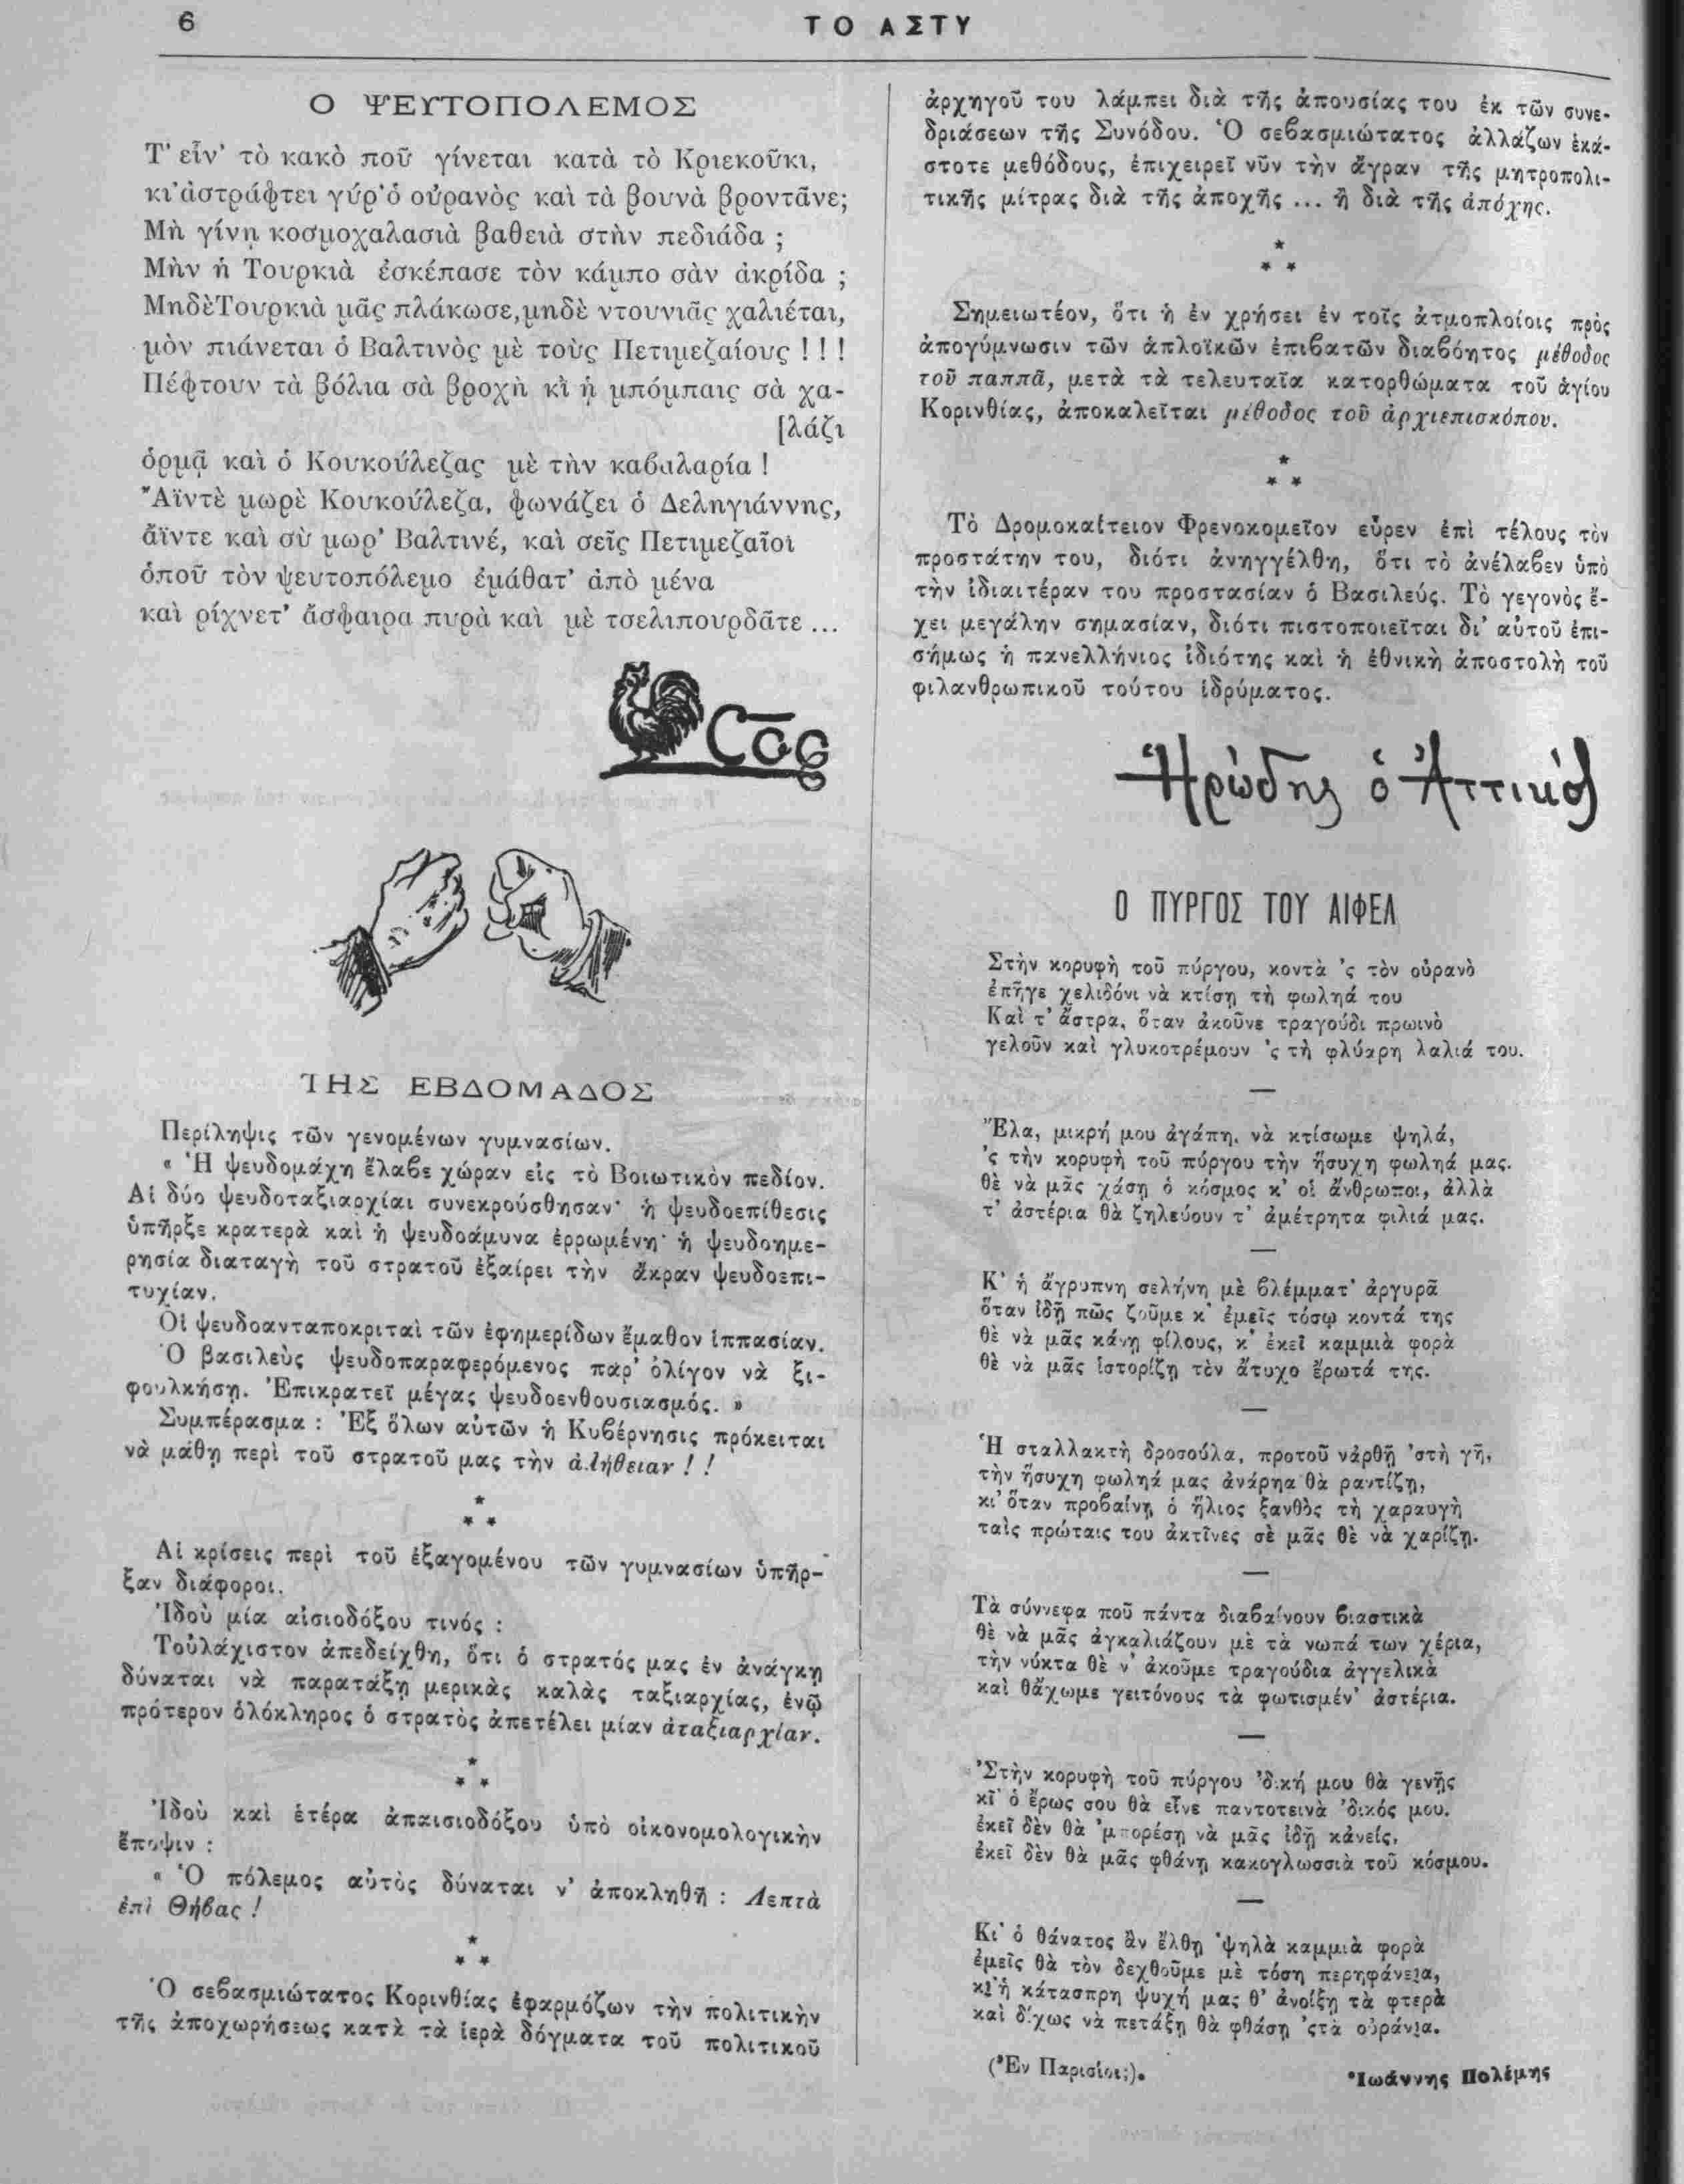 6
ΤΟ ΑΣΤΥ
Ο ΨΕΥΤΟΠΟΛΕΜΟΣ
Τ' εἶν' τὸ κακὸ ποῦ γίνεται κατὰ τὸ Κριεκοῦκι,
κι' ἀστράφτει γύρ' ὁ οὐρανὸς καὶ τὰ βουνὰ βροντᾶνε;
Μὴ γίνῃ κοσμοχαλασιὰ βαθειὰ στὴν πεδιάδα ;
Μὴν ἡ Τουρκιὰ ἐσκέπασε τὸν κάμπο σὰν ἀκρίδα ;
Μηδὲ Τουρκιὰ μᾶς πλάκωσε, μηδὲ ντουνιᾶς χαλιέται,
μὸν πιάνεται ὁ Βαλτινὸς μὲ τοὺς Πετιμεζαίους ! ! !
Πέφτουν τὰ βόλια σὰ βροχὴ κῒ ᾑ μπόμπαις σὰ χα-
[λάζι
ὁρμᾷ καὶ ὁ Κουκούλεζας μὲ τὴν καβαλαρία !
Ἄϊντὲ μωρὲ Κουκούλεζα, φωνάζει ὁ Δεληγιάννης,
ἄϊντε καὶ σὺ μωρ' Βαλτινέ, καὶ σεῖς Πετιμεζαῖοι
ὁποῦ τὸν ψευτοπόλεμο ἐμάθατ' ἀπὸ μένα
καὶ ρίχνετ' ἄσφαιρα πυρὰ καὶ μὲ τσελιπουρδᾶτε ...
ΤΗΣ ΕΒΔΟΜΑΔΟΣ
Περίληψις τῶν γενομένων γυμνασίων.
« Ἡ ψευδομάχη ἔλαβε χώραν εἰς τὸ Βοιωτικὸν πεδίον.
Αἱ δύο ψευδοταξιαρχίαι συνεκρούσθησαν· ἡ ψευδοεπίθεσις
ὑπῆρξε κρατερὰ καὶ ἡ ψευδοάμυνα ἐρρωμένη· ἡ ψευδοημε-
ρησία διαταγὴ τοῦ στρατοῦ ἐξαίρει τὴν ἄκραν ψευδοεπι-
τυχίαν.
Οἱ ψευδοανταποκριταὶ τῶν ἐφημερίδων ἔμαθον ἱππασίαν.
Ὁ βασιλεὺς ψευδοπαραφερόμενος παρ' ὀλίγον νὰ ξι-
φουλκήσῃ. Ἐπικρατεῖ μέγας ψευδοενθουσιασμός. »
Συμπέρασμα : Ἐξ ὅλων αὐτῶν ἡ Κυβέρνησις πρόκειται
νὰ μάθῃ περὶ τοῦ στρατοῦ μας τὴν ἀλήθειαν ! !
* * *
Αἱ κρίσεις περὶ τοῦ ἐξαγομένου τῶν γυμνασίων ὑπῆρ-
ξαν διάφοροι.
Ἰδοὺ μία αἰσιοδόξου τινός :
Τοὐλάχιστον ἀπεδείχθη, ὅτι ὁ στρατός μας ἐν ἀνάγκῃ
δύναται νὰ παρατάξῃ μερικὰς καλὰς ταξιαρχίας, ἐνῷ
πρότερον ὁλόκληρος ὁ στρατὸς ἀπετέλει μίαν ἀταξιαρχίαν.
* * *
Ἰδοὺ καὶ ἑτέρα ἀπαισιοδόξου ὑπὸ οἰκονομολογικὴν
ἔποψιν :
« Ὁ πόλεμος αὐτὸς δύναται ν' ἀποκληθῇ : Λεπτὰ
ἐπὶ Θήβας !
* * *
Ὁ σεβασμιώτατος Κορινθίας ἐφαρμόζων τὴν πολιτικὴν
τῆς ἀποχωρήσεως κατὰ τὰ ἱερὰ δόγματα τοῦ πολιτικοῦ
ἀρχηγοῦ του λάμπει διὰ τῆς ἀπουσίας του ἐκ τῶν συνε-
δριάσεων τῆς Συνόδου. Ὁ σεβασμιώτατος ἀλλάζων ἑκά-
στοτε μεθόδους, ἐπιχειρεῖ νῦν τὴν ἄγραν τῆς μητροπολι-
τικῆς μίτρας διὰ τῆς ἀποχῆς ... ἢ διὰ τῆς ἀπόχης.
* * *
Σημειωτέον, ὅτι ἡ ἐν χρήσει ἐν τοῖς ἀτμοπλοίοις πρὸς
ἀπογύμνωσιν τῶν ἁπλοϊκῶν ἐπιβατῶν διαβόητος μέθοδος
τοῦ παππᾶ, μετὰ τὰ τελευταῖα κατορθώματα τοῦ ἁγίου
Κορινθίας, ἀποκαλεῖται μέθοδος τοῦ ἀρχιεπισκόπου.
* * *
Τὸ Δρομοκαΐτειον Φρενοκομεῖον εὗρεν ἐπὶ τέλους τὸν
προστάτην του, διότι ἀνηγγέλθη, ὅτι τὸ ἀνέλαβεν ὑπὸ
τὴν ἰδιαιτέραν του προστασίαν ὁ Βασιλεύς. Τὸ γεγονὸς ἔ-
χει μεγάλην σημασίαν, διότι πιστοποιεῖται δι' αὐτοῦ ἐπι-
σήμως ἡ πανελλήνιος ἰδιότης καὶ ἡ ἐθνικὴ ἀποστολὴ τοῦ
φιλανθρωπικοῦ τούτου ἱδρύματος.
Ἡρώδης ὁ Ἀττικός
Ο ΠΥΡΓΟΣ ΤΟΥ ΑΙΦΕΛ
Στὴν κορυφὴ τοῦ πύργου, κοντὰ 'ς τὸν οὐρανὸ
ἐπῆγε χελιδόνι νὰ κτίσῃ τὴ φωληά του
Καὶ τ' ἄστρα, ὅταν ἀκοῦνε τραγούδι πρωινὸ
γελοῦν καὶ γλυκοτρέμουν 'ς τὴ φλύαρη λαλιά του.
—
Ἔλα, μικρή μου ἀγάπη, νὰ κτίσωμε ψηλά,
'ς τὴν κορυφὴ τοῦ πύργου τὴν ἥσυχη φωληά μας.
θὲ νὰ μᾶς χάσῃ ὁ κόσμος κ' οἱ ἄνθρωποι, ἀλλὰ
τ' ἀστέρια θὰ ζηλεύουν τ' ἀμέτρητα φιλιά μας.
—
Κ' ἡ ἄγρυπνη σελήνη μὲ βλέμματ' ἀργυρᾶ
ὅταν ἰδῇ πῶς ζοῦμε κ' ἐμεῖς τόσῳ κοντά της
θὲ νὰ μᾶς κάνῃ φίλους, κ' ἐκεῖ καμμιὰ φορὰ
θὲ νὰ μᾶς ἱστορίζῃ τὸν ἄτυχο ἔρωτά της.
—
Ἡ σταλλακτὴ δροσούλα, προτοῦ νάρθῃ 'στὴ γῆ,
τὴν ἥσυχη φωληά μας ἀνάρηα θὰ ραντίζῃ,
κι' ὅταν προβαίνῃ ὁ ἥλιος ξανθὸς τὴ χαραυγὴ
ταὶς πρώταις του ἀκτῖνες σὲ μᾶς θὲ νὰ χαρίζῃ.
—
Τὰ σύννεφα ποῦ πάντα διαβαίνουν βιαστικὰ
θὲ νὰ μᾶς ἀγκαλιάζουν μὲ τὰ νωπά των χέρια,
τὴν νύκτα θὲ ν' ἀκοῦμε τραγούδια ἀγγελικὰ
καὶ θἄχωμε γειτόνους τὰ φωτισμέν' ἀστέρια.
—
Στὴν κορυφὴ τοῦ πύργου 'δική μου θὰ γενῇς
κῒ ὁ ἔρως σου θὰ εἶνε παντοτεινὰ 'δικός μου.
ἐκεῖ δὲν θὰ 'μπορέσῃ νὰ μᾶς ἰδῇ κἀνείς,
ἐκεῖ δὲν θὰ μᾶς φθάνῃ κακογλωσσιὰ τοῦ κόσμου.
—
Κι' ὁ θάνατος ἂν ἔλθῃ 'ψηλὰ καμμιὰ φορὰ
ἐμεῖς θὰ τὸν δεχθοῦμε μὲ τόση περηφάνεια,
κι' ἡ κάτασπρη ψυχή μας θ' ἀνοίξῃ τὰ φτερὰ
καὶ δίχως νὰ πετάξῃ θὰ φθάσῃ 'ςτὰ οὐράνια.
(Ἐν Παρισίοις).
Ἰωάννης Πολέμης